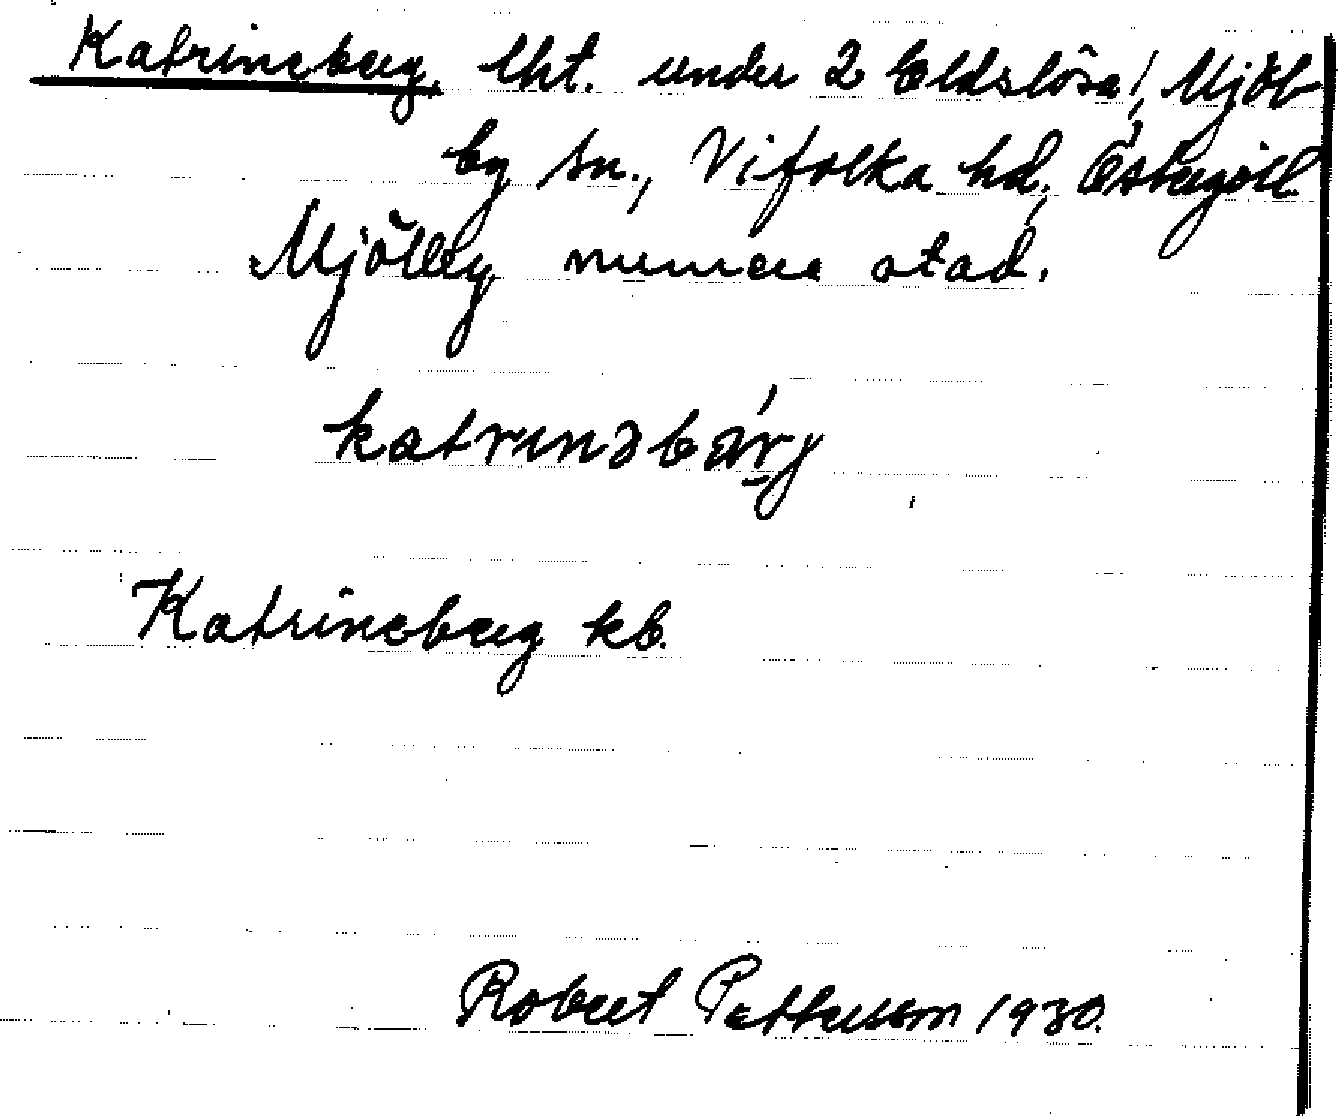 Katrineberg, lht. under 2 Eldslösa, Mjöl-
by sn., Vifolka hd, Östergötl.
Mjölby numera stad.
katrinəbärj
Katrineberg kb.
Robert Pettersson 1930.